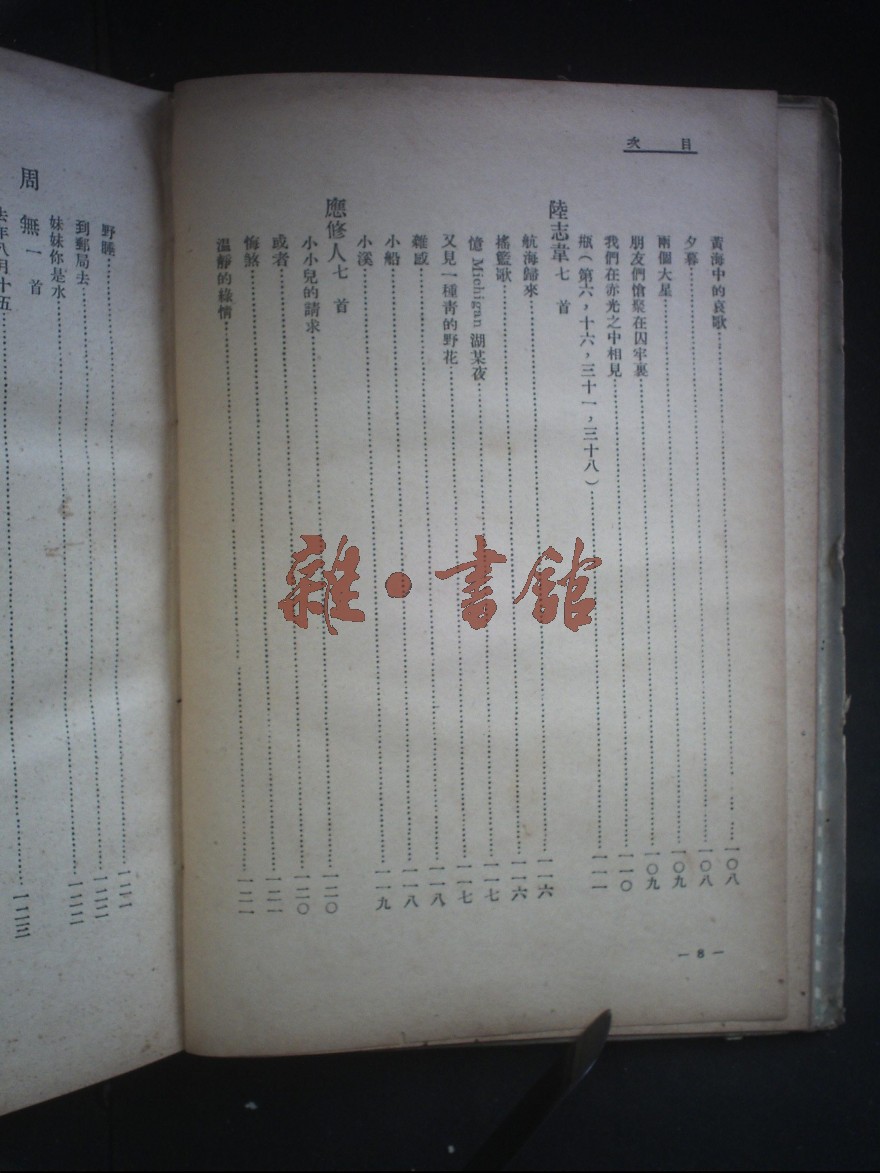 目次
黃海中的哀歌……一〇八
夕暮……一〇八
兩個大星……一〇九
朋友們愴聚在囚牢裏……一〇九
我們在赤光之中相見……一一〇
瓶（第六，十六，三十一，三十八）……一一一
陸志韋七首
航海歸來……一一六
搖籃歌……一一六
憶 Michigan 湖某夜……一一七
又見一種靑的野花……一一七
雜感……一一八
小船……一一八
小溪……一一九
應修人七首
小小兒的請求……一二〇
或者……一二〇
悔煞……一二一
溫靜的綠情……一二一
— 8 —
野睡……一二一
到郵局去……一二二
妹妹你是水……一二二
周無一首
去年八月十五……一二三
雜·書館